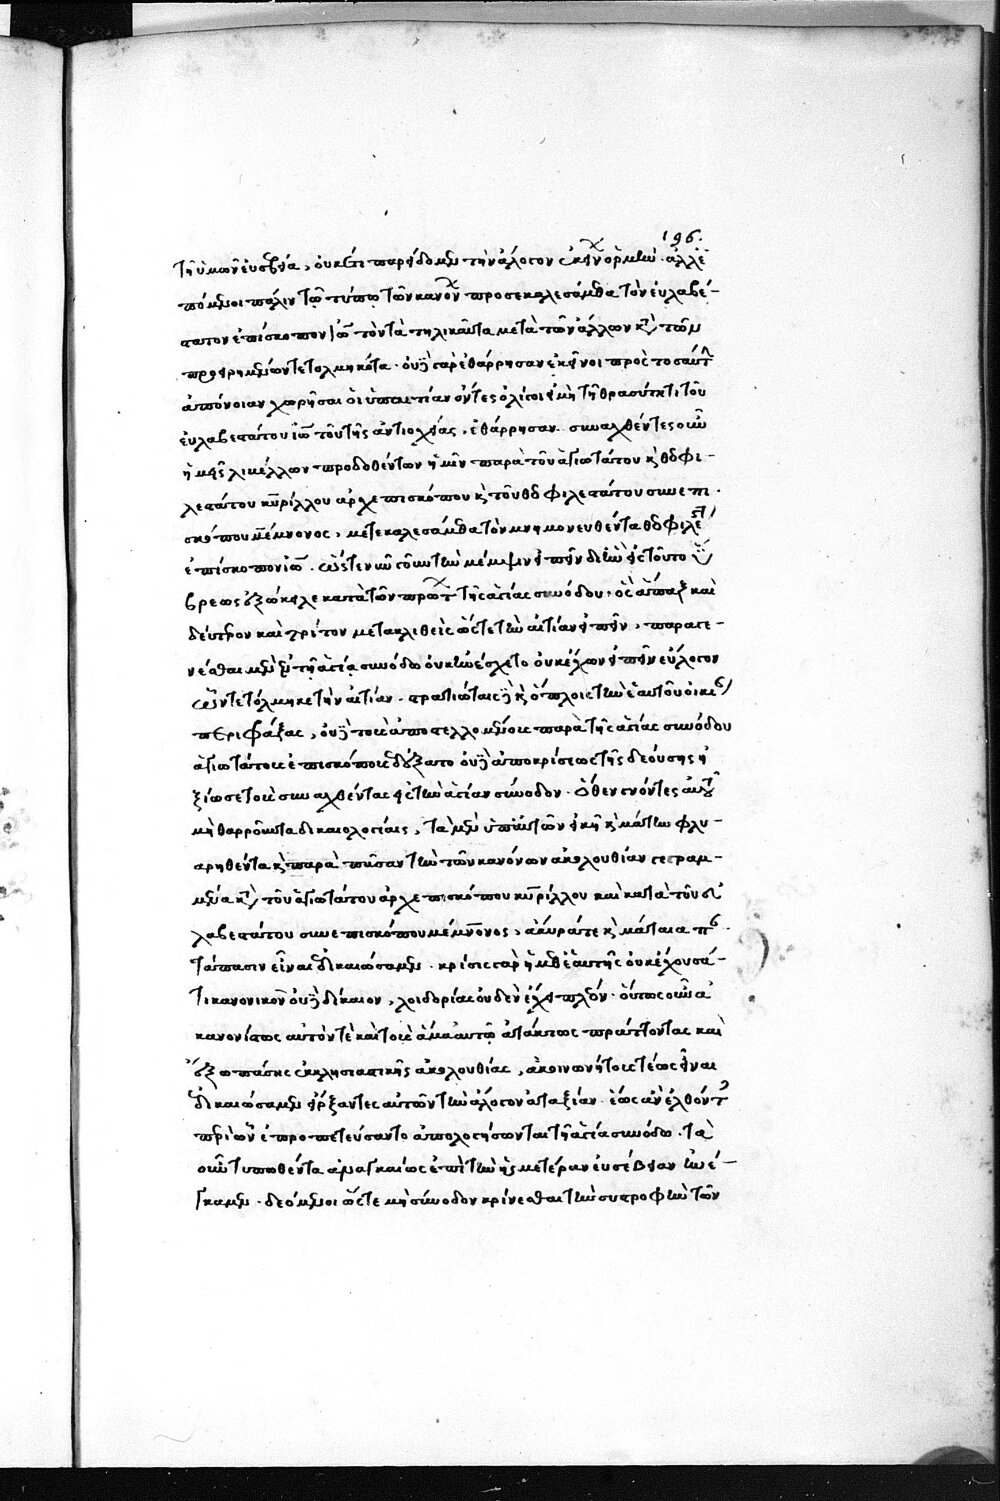 196.
τῇ ὑμῶν εὐσεβεία, οὐκέτι παρείδομεν τὴν ἄλογον ἐκείνων ὁρμὴν. ἀλλ' ἑ
πόμενοι πάλιν τῷ τύπῳ τῶν κανόνων προσεκαλεσάμεθα τὸν εὐλαβέ-
στατον ἐπίσκοπον ἰω τὸν τὰ τηλικαῦτα μετὰ τῶν ἄλλων κατὰ τῶν
προειρημένων τετολμηκότα. οὐδὲ γὰρ ἐθάρρησαν ἐκεῖνοι πρὸς τοσαύτην
ἀπόνοιαν χωρῆσαι οἱ ὑπ' αἰτίαν ὄντες ὀλίγοι εἰ μὴ τῇ θρασύτητι τοῦ
εὐλαβεστάτου ἰω τοῦ τῆς ἀντιοχείας, ἐθάρρησαν. συναχθέντες οὖν
ἡμεῖς λιβέλλων προδοθέντων ἡμῖν παρὰ τοῦ ἁγιωτάτου κ θεοφι-
λεστάτου κυρίλλου ἀρχιεπισκόπου κ τοῦ θεοφιλεστάτου συνεπι.
σκόπου μέμνονος, μετεκαλεσάμεθα τὸν μνημονευθέντα θεοφιλέστ
ἐπίσκοπον ἰω. ὥστε νῦν γοῦν τὴν μέμψιν εἰπεῖν δι' ἣν εἰς τοῦτο ὕ
βρεως ἐξώκειλε κατὰ τῶν πρώτων τῆς ἁγίας συνόδου. ὃς ἅπαξ καὶ
δεύτερον καὶ τρίτον μετακληθεὶς ὥστε τὴν αἰτίαν εἰπεῖν, παραγε-
νέσθαι μὲν ἐν τῇ ἁγία συνόδω οὐκ ἠνέσχετο οὐκ ἔχων εἰπεῖν εὔλογον
ὧν τετόλμηκε τὴν αἰτίαν. στρατιώταις δὲ κ ὅπλοις τὴν ἑαυτοῦ οἰκίαν
περιφράξας, οὐδὲ τοὺς ἀποστελλομένους παρὰ τῆς ἁγίας συνόδου
ἁγιωτάτους ἐπισκόπους ἐδέξατο οὐδὲ ἀποκρίσεως τῆς δεούσης ἠ
ξίωσε τοὺς συναχθέντας εἰς τὴν ἁγίαν σύνοδον. ὅθεν γνόντες αὐτὸν
μὴ θαρροῦντα δικαιολογίαις, τὰ μὲν ὑπ' αὐτῶν εἰκῆ κ μάτην φλυ-
αρηθέντα κ παρὰ πᾶσαν τὴν τῶν κανόνων ἀκολουθίαν γεγραμ-
μένα κατὰ τοῦ ἁγιωτάτου ἀρχιεπισκόπου κυρίλλου καὶ κατὰ τοῦ εὐ
λαβεστάτου συνεπισκόπου μέμνονος, ἄκυρά τε κ μάταια παν.
τάπασιν εἶναι ἐδικαιώσαμεν. κρίσις γὰρ ἡ μεθ' ἑαυτῆς οὐκ ἔχουσά-
τι κανονικὸν οὐδὲ δίκαιον, λοιδορίας οὐδὲν ἔχει πλέον. οὕτως οὖν ἀ
κανονίστως αὐτόν τε καὶ τοὺς ἅμα αὐτῷ ἀτάκτως πράττοντας καὶ
ἔξω πάσης ἐκκλησιαστικῆς ἀκολουθίας, ἀκοινωνήτους τέως εἶναι
ἐδικαιώσαμεν εἴρξαντες αὐτῶν τὴν ἄλογον ἀταξίαν. ἕως ἂν ἐλθόντες
περὶ ὧν ἐπροπετεύσαντο ἀπολογήσωνται τῇ ἁγία συνόδω. τὰ
οὖν τυπωθέντα ἀναγκαίως ἐπὶ τὴν ὑμετέραν εὐσέβειαν ἠνέ-
γκαμεν. δεόμενοι ὥστε μὴ σύνοδον κρίνεσθαι τὴν συστροφὴν τῶν